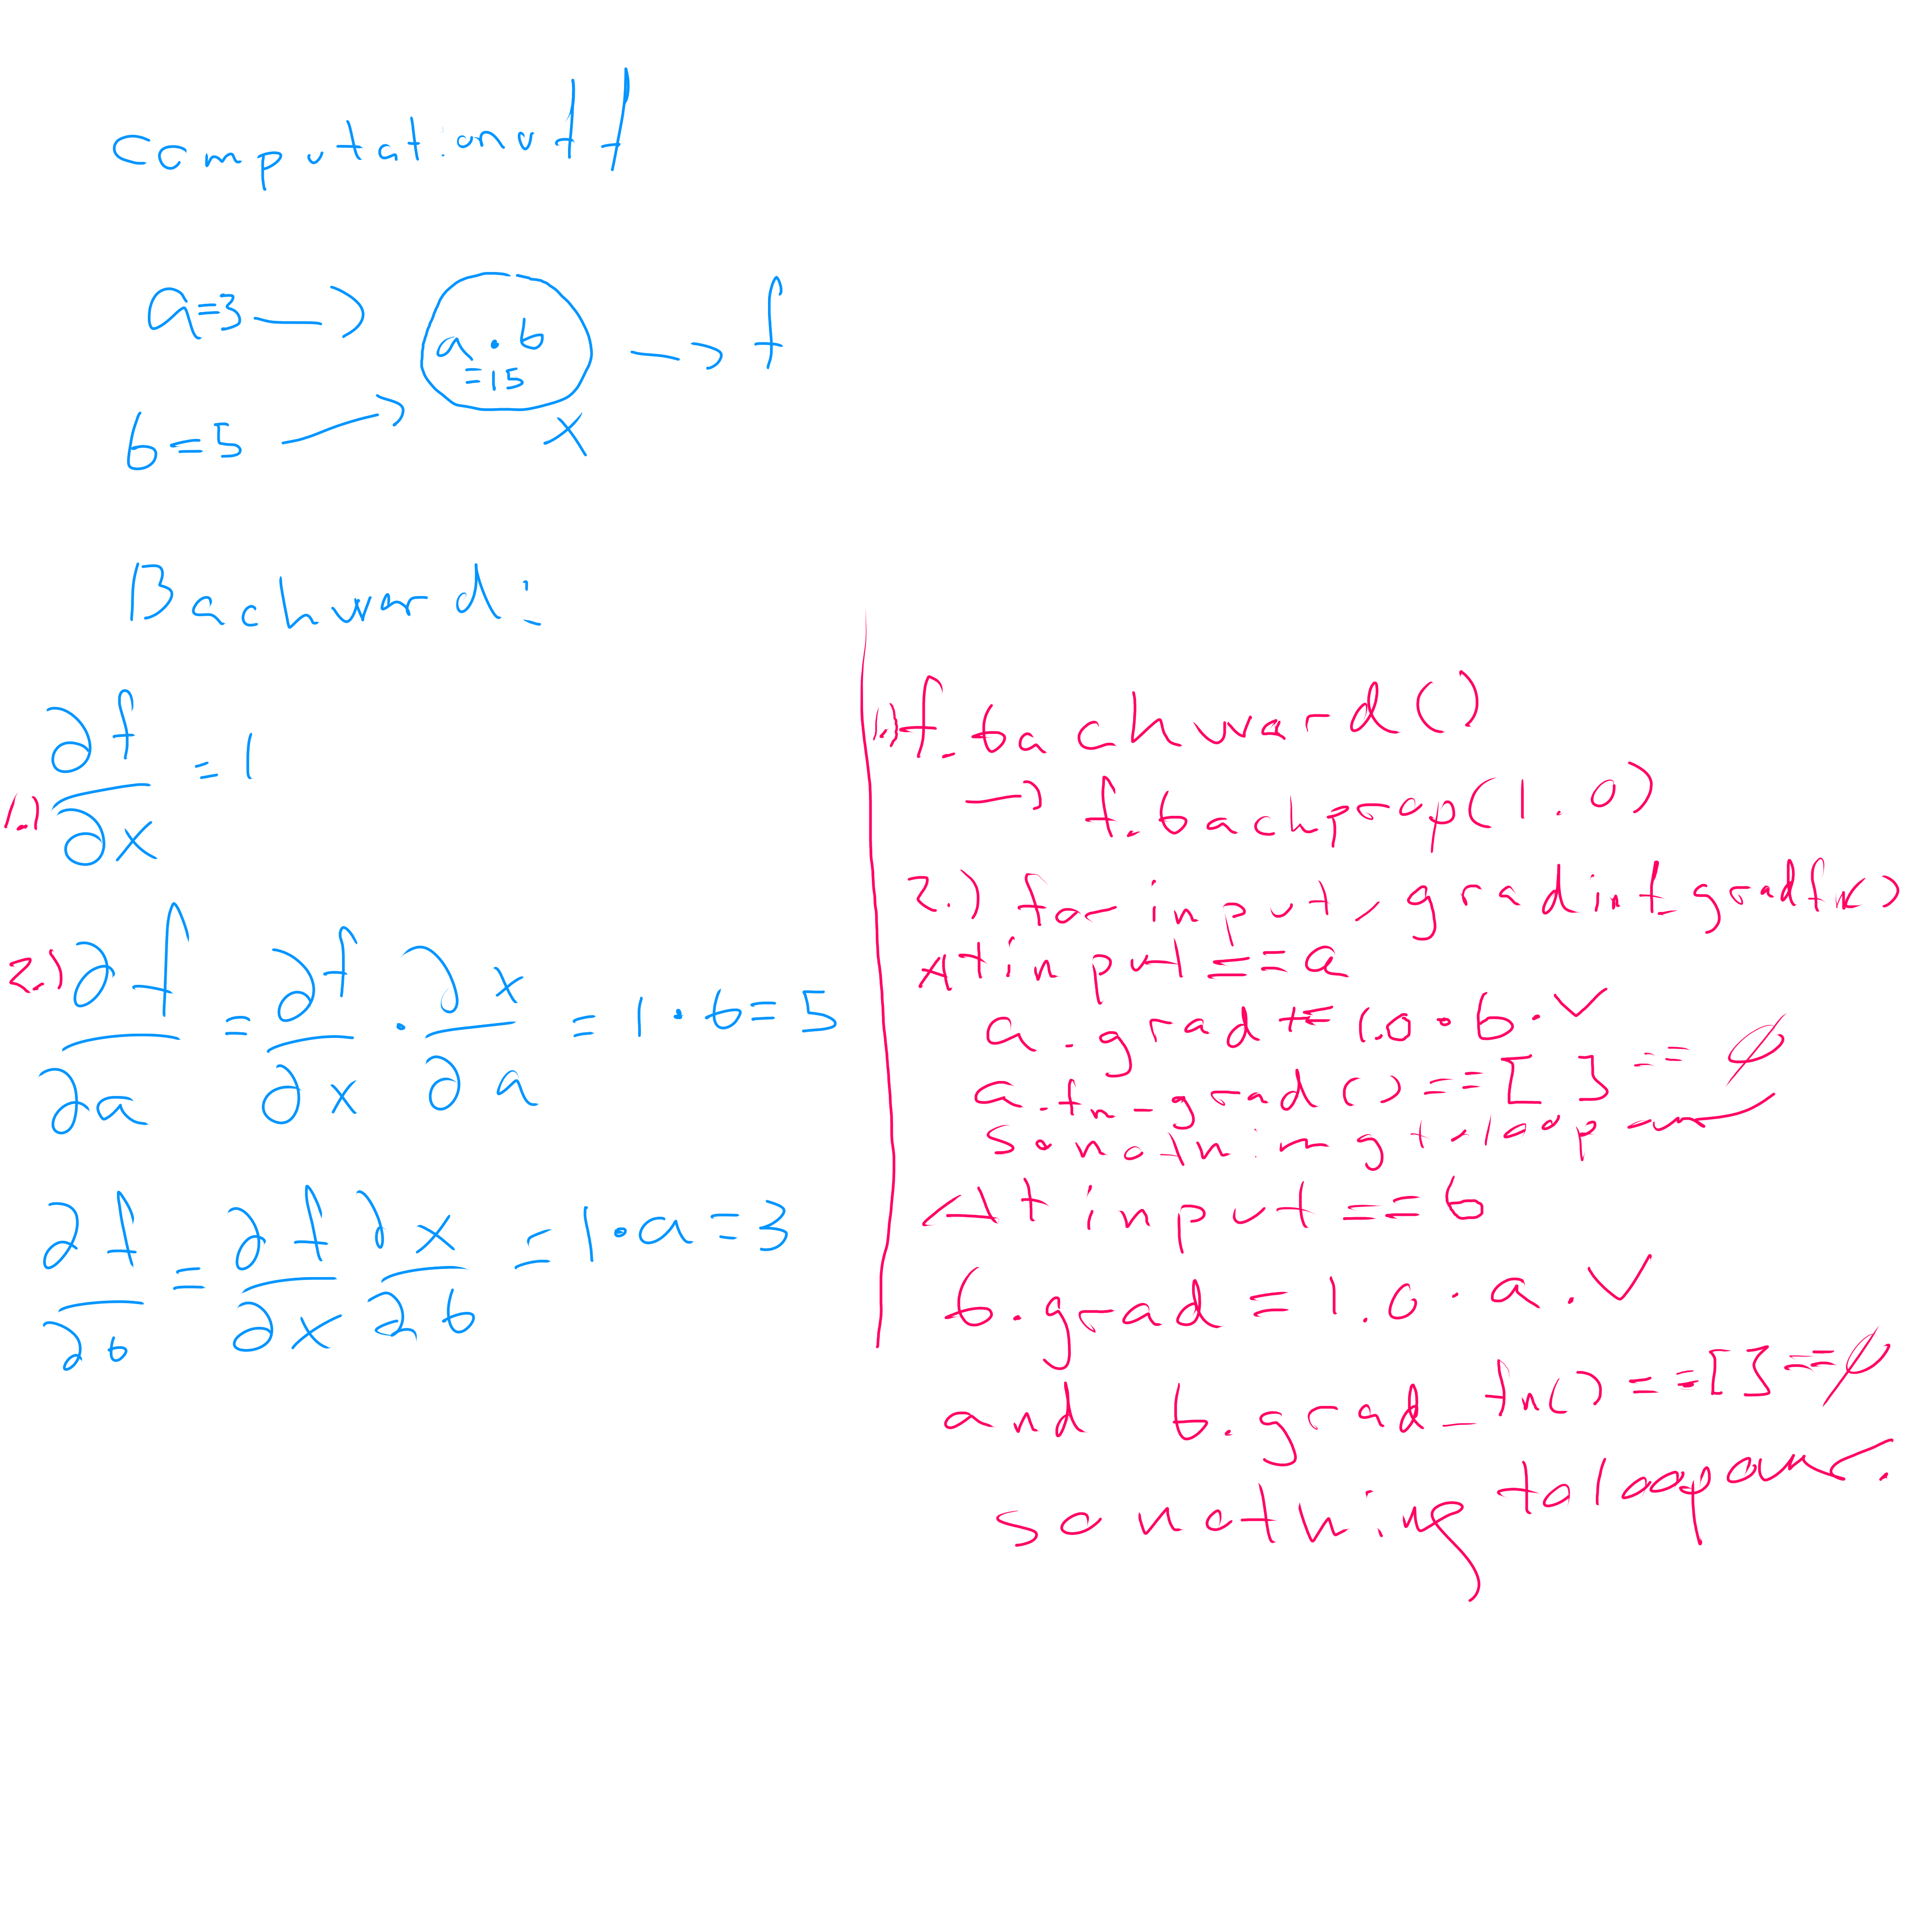 computational f
a=3 → a · b → f
=15
b=5 → x
Backward:
∂f/∂x = 1
1.)
2.) ∂f/∂a = ∂f/∂x · ∂x/∂a = 1 · b = 5
∂f/∂b = ∂f/∂x ∂x/∂b = 1 · a = 3
1.) f.backward()
→ f.backprop(1.0)
2.) for input,
if input == a
a.grad += 1.0 · b. ✓
== [ ] == ∅
so nothing to loop
if input == b
b.grad = 1.0 · a. ✓
and b.grad_fn() == [] == ∅
so nothing to loop over.